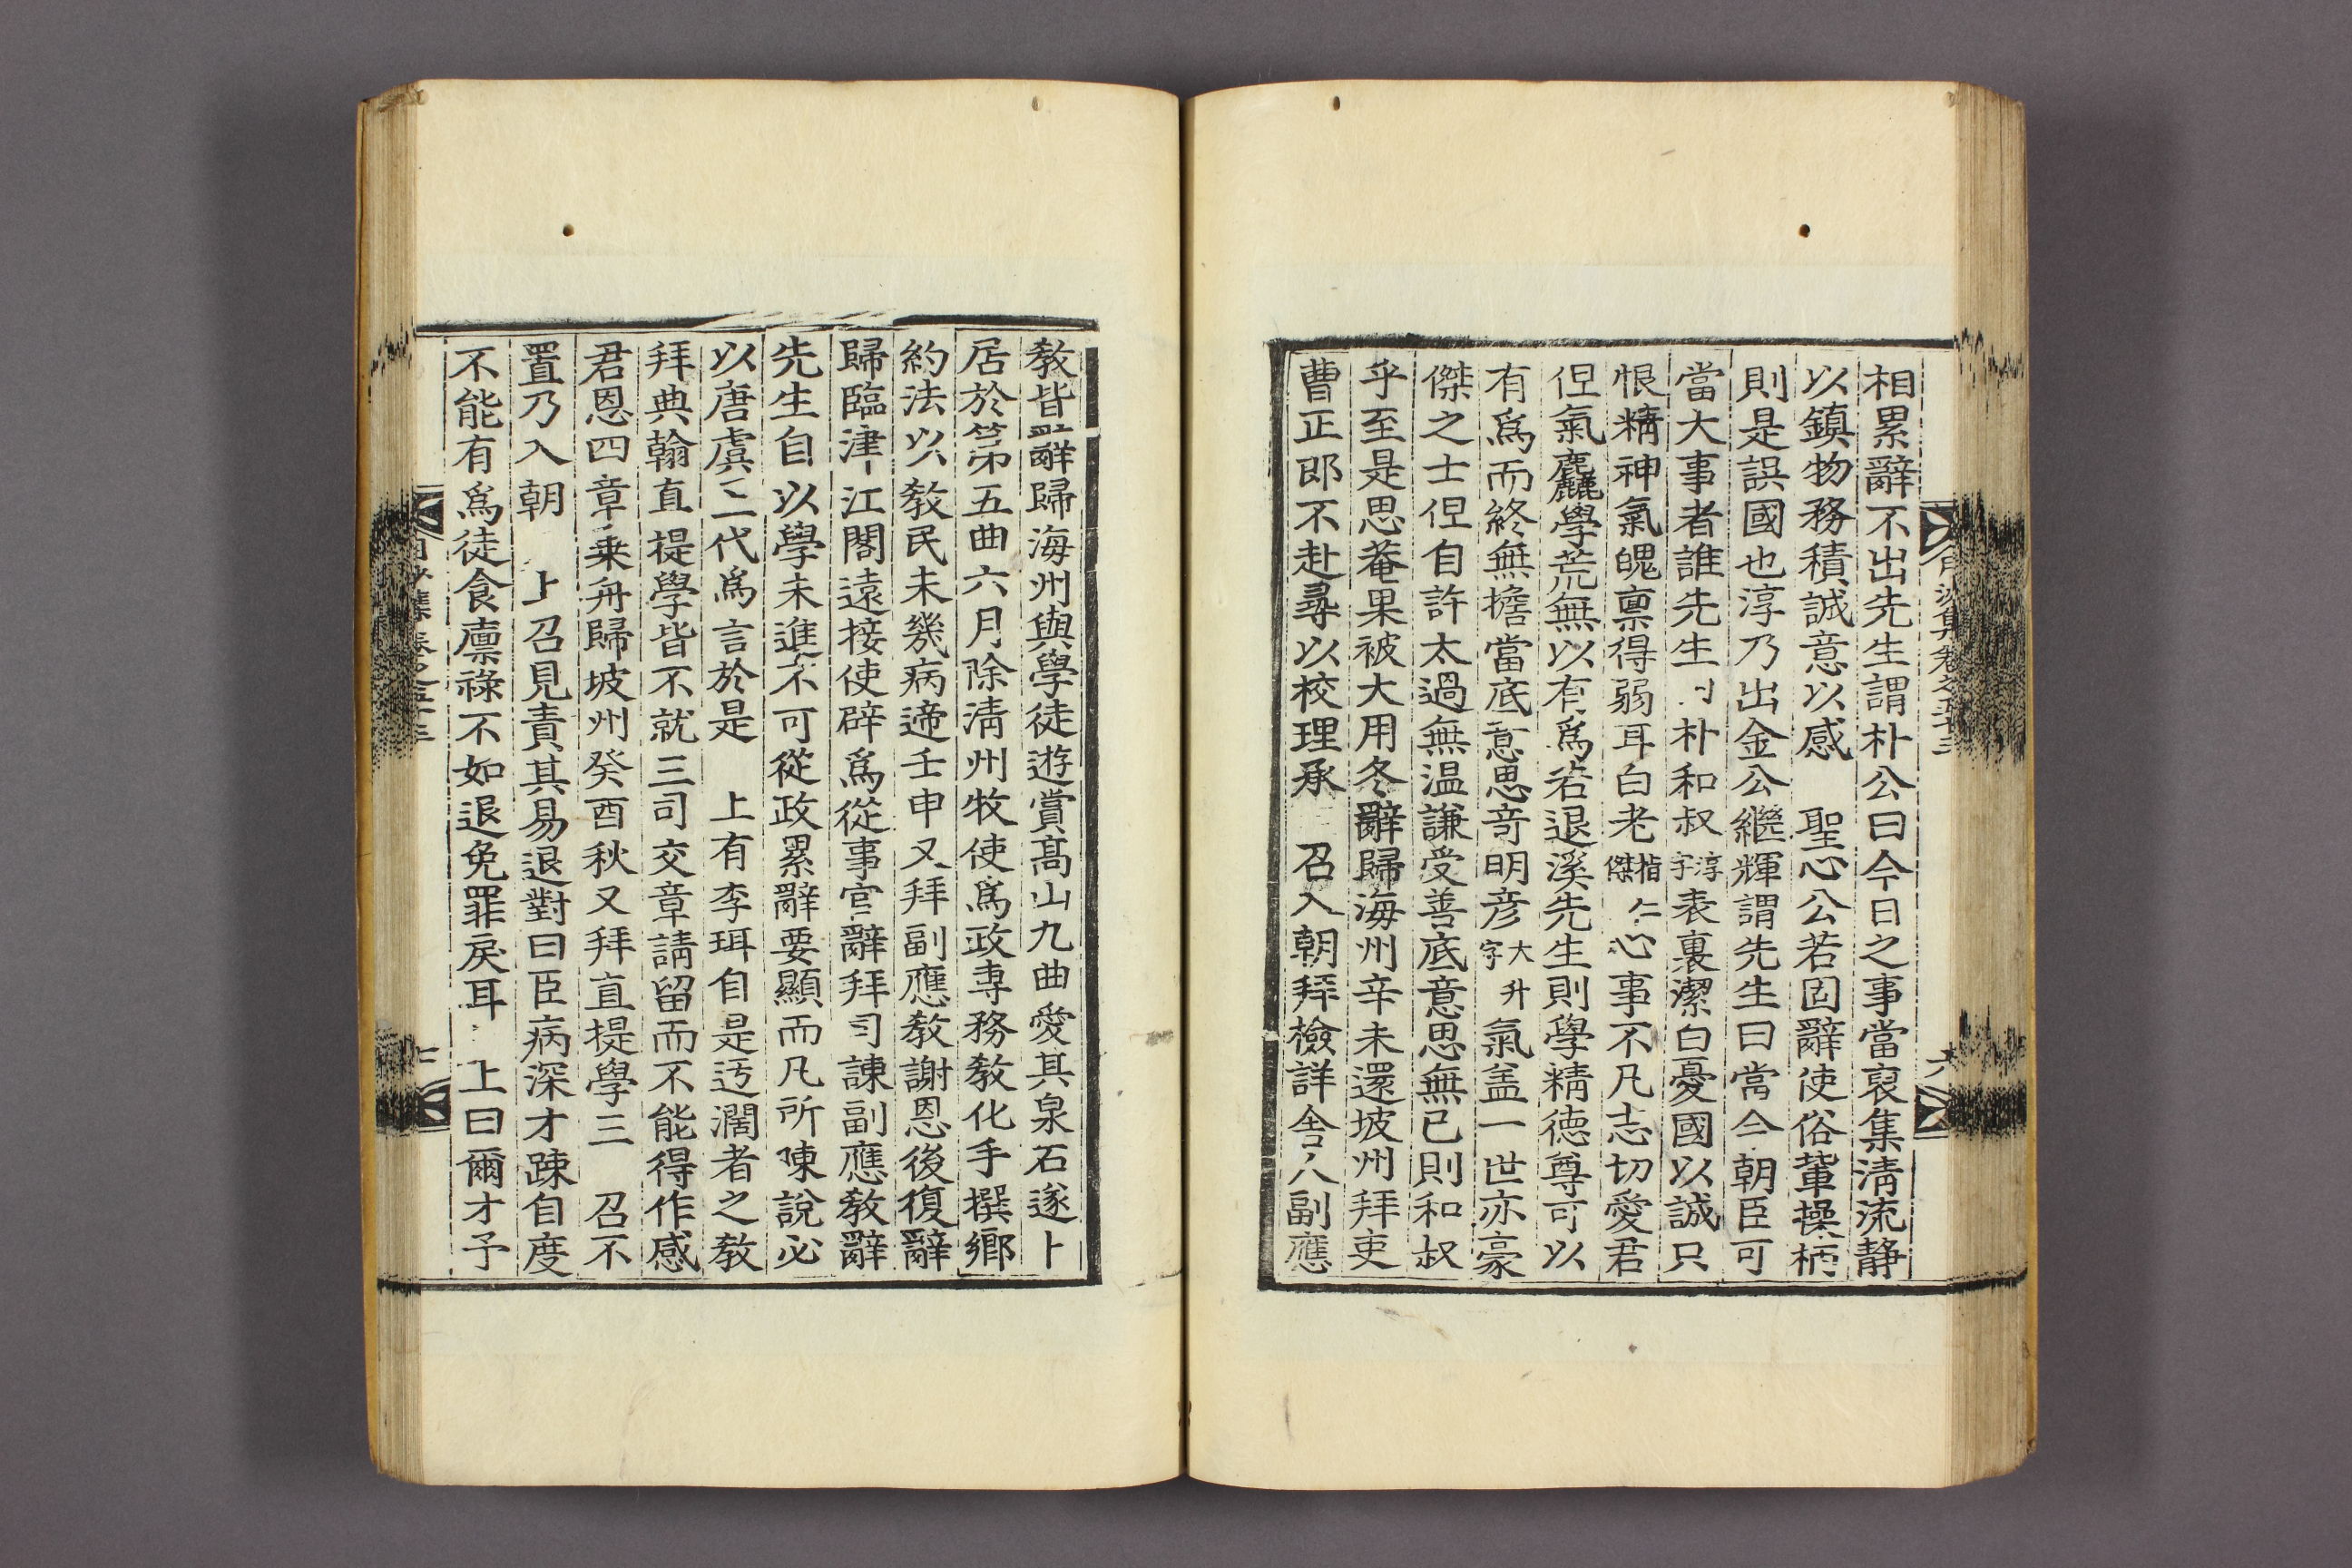 相累辭不出先生謂朴公曰今日之事當裒集淸流靜
以鎭物務積誠意以感 聖心公若固辭使俗輩操柄
則是誤國也淳乃出金公繼輝謂先生曰當今朝臣可
當大事者誰先生曰朴和叔淳字表裏潔白憂國以誠只
恨精神氣魄稟得弱耳白老仁傑心事不凡志切愛君
但氣麤學荒無以有爲若退溪先生則學精德尊可以
有爲而終無擔當底意思奇明彦大升字氣盖一世亦豪
傑之士但自許太過無温謙受善底意思無已則和叔
乎至是思菴果被大用冬辭歸海州辛未還坡州拜吏
曹正郎不赴尋以校理承 召入朝拜檢詳舍人副應
敎皆辭歸海州與學徒遊賞高山九曲愛其泉石遂卜
居於第五曲六月除淸州牧使爲政專務敎化手撰鄕
約法以敎民未幾病遞壬申又拜副應敎謝恩後復辭
歸臨津江閣遠接使辟爲從事官辭拜司諫副應敎辭
先生自以學未進不可從政累辭要顯而凡所陳說必
以唐虞三代爲言於是 上有李珥自是迂濶者之敎
拜典翰直提學皆不就三司交章請留而不能得作感
君恩四章乗舟歸坡州癸酉秋又拜直提學三 召不
置乃入朝 上召見責其易退對曰臣病深才踈自度
不能有爲徒食廩祿不如退免罪戾耳 上曰爾才予